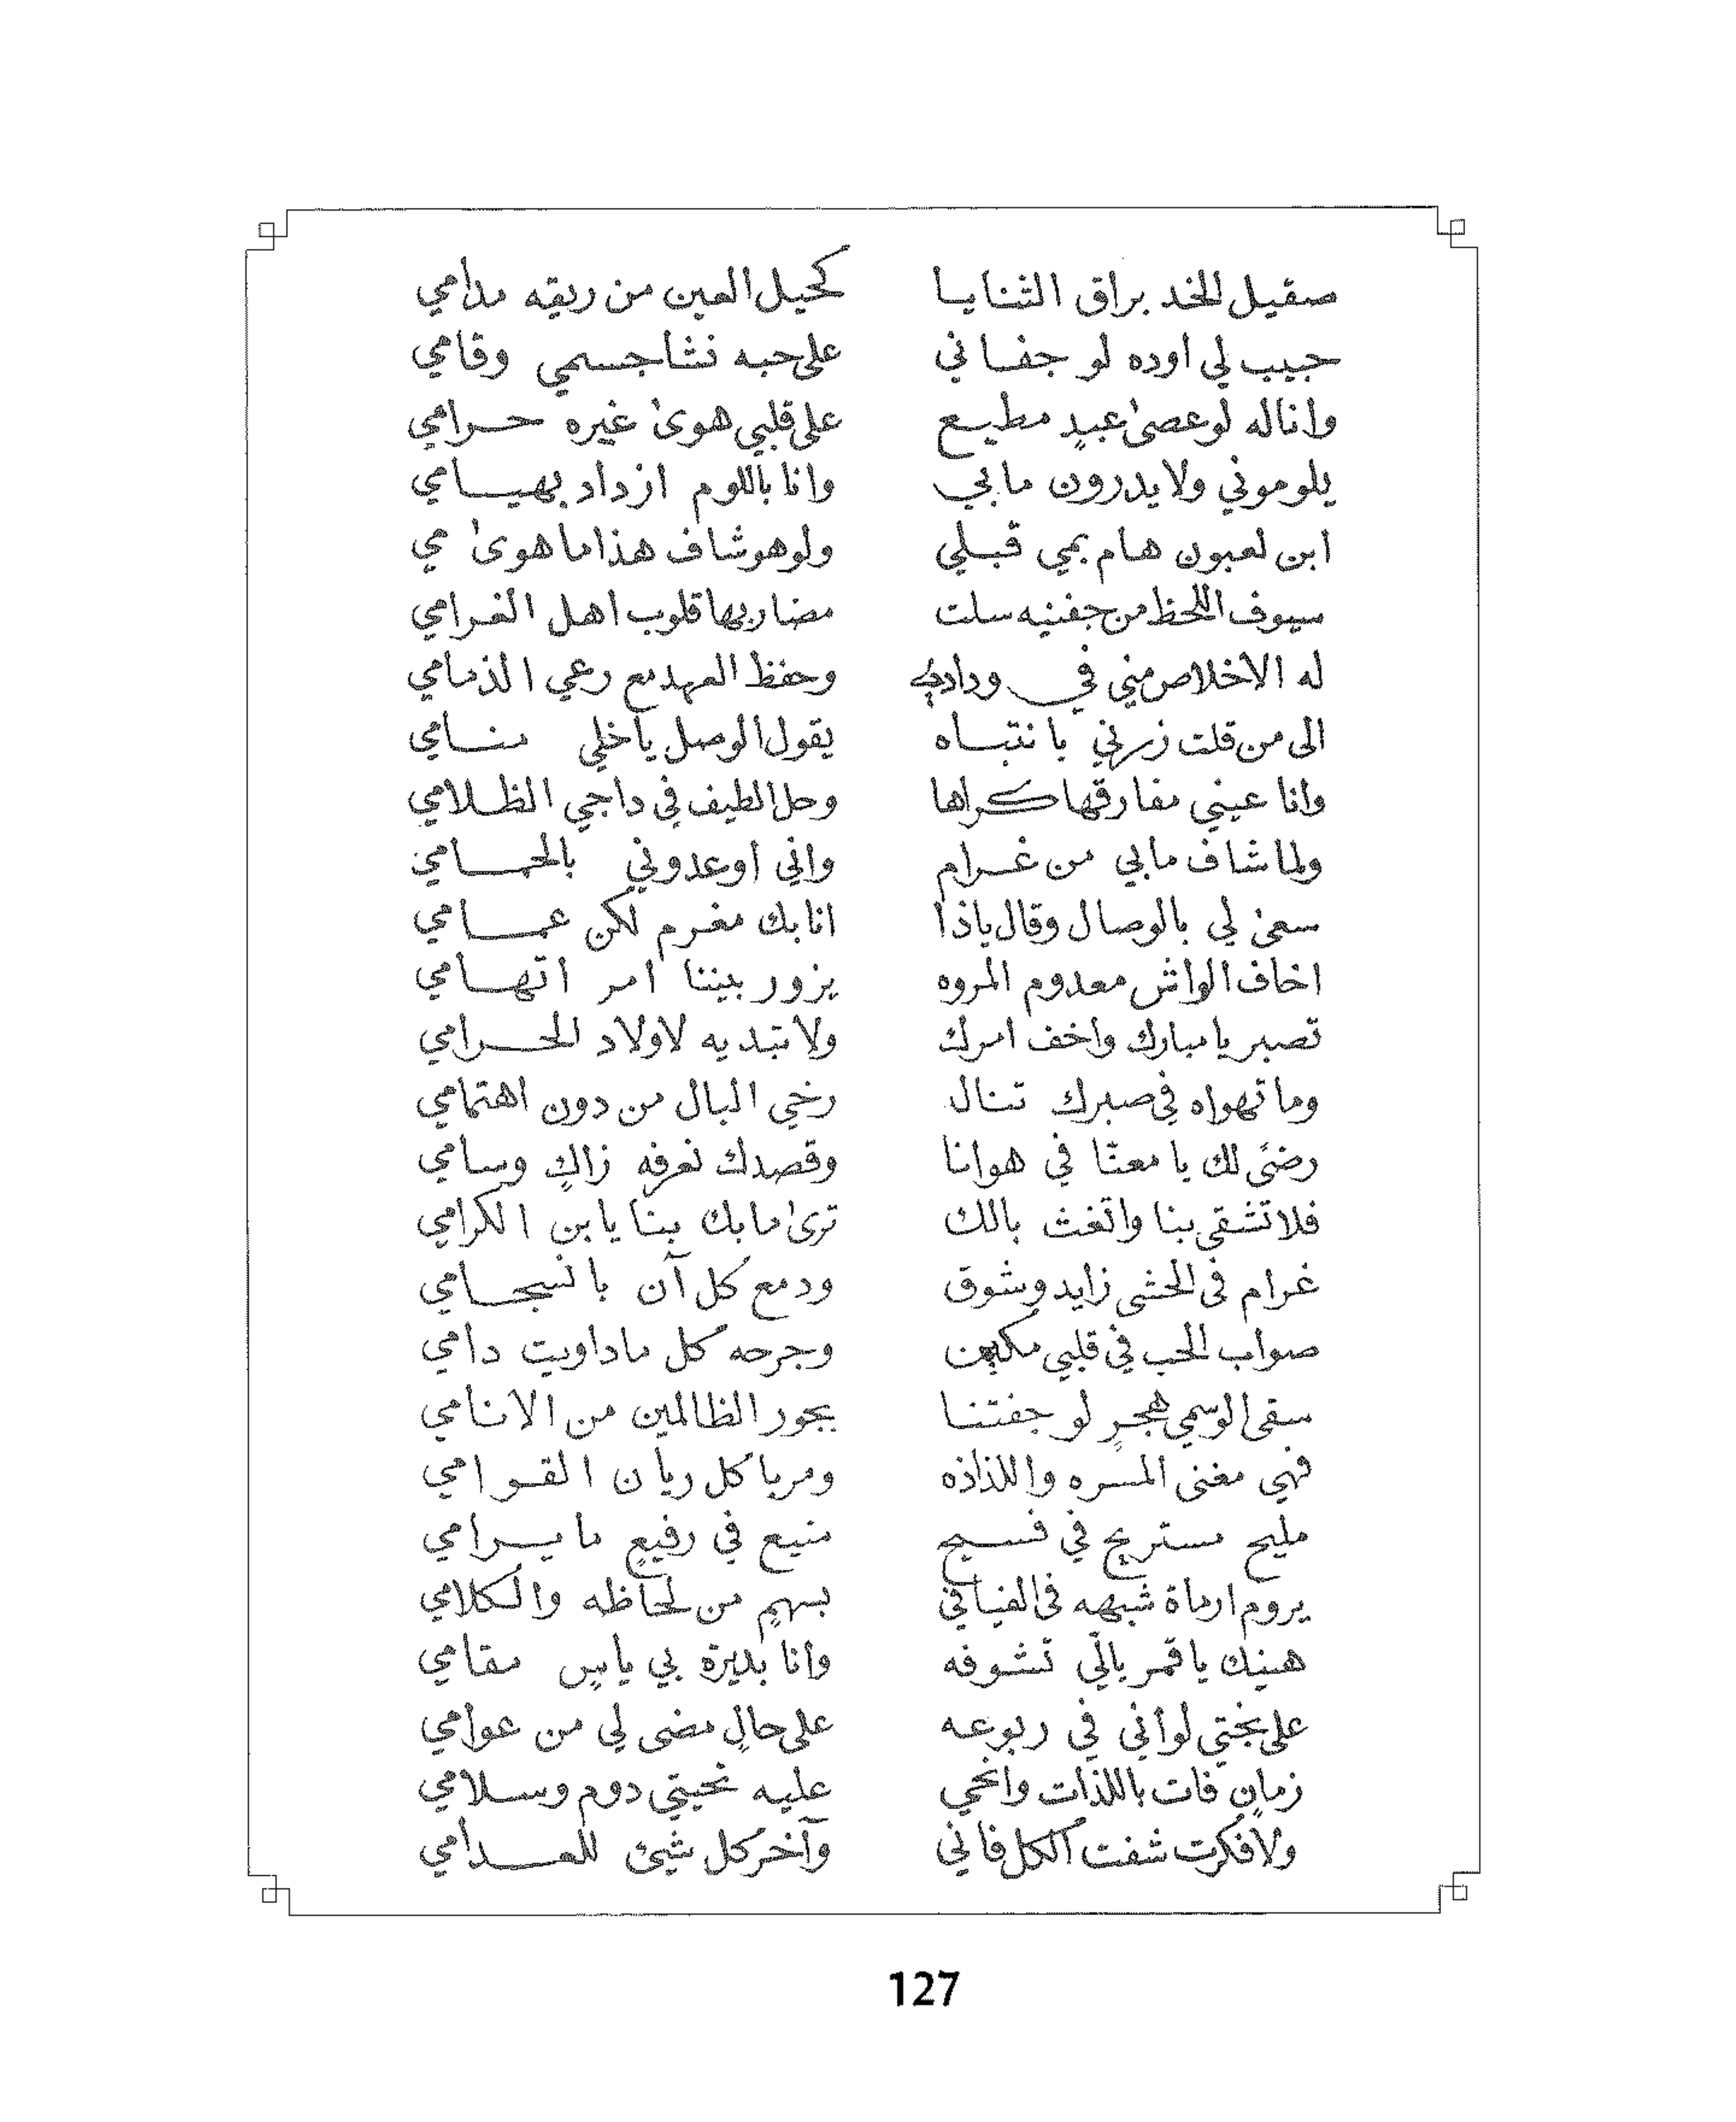 صقيل الخد براق الثنايا كحيل العين من ريقه مدامي
حبيب لي اوده لو جفاني على حبه نشا جسمي وقامي
وانا له لو عصىٰ عبدٍ مطيع على قلبي هوىٰ غيره حرامي
يلوموني ولا يدرون مابي وانا باللوم ازداد بهيامي
ابن لعبون هام بمي قبلي ولو هو شاف هذا ما هوىٰ مي
سيوف اللحظ من جفنيه سلت مضاربها قلوب اهل الغرامي
له الاخلاص مني في ودادي وحفظ العهد مع رعي الذمامي
الى من قلت زرني بانتباه يقول الوصل ياخلي منامي
وانا عيني مفارقها كراها وحل الطيف في داجي الظلامي
ولما شاف مابي من غرام واني اوعدوني بالحمامي
سعىٰ لي بالوصال وقال ياذا انا بك مغرم لكن عمامي
اخاف الواش معدوم المروه يزور بيننا امر اتهامي
تصبر يا مبارك واخف امرك ولا تبديه لاولاد الحرامي
وما تهواه في صبرك تنال رخي البال من دون اهتمامي
رضىً لك يا معنّا في هوانا وقصدك نعرفه زاكٍ وسامي
فلا تشقى بنا واتغث بالك ترىٰ مابك بنا يابن الكرامي
غرام في الحشى زايد وشوق ودمع كل آن بانسجامي
صواب الحب في قلبي مكين وجرحه كل ماداويت دامي
سقى الوسمي هجرٍ لو جفتنا بجور الظالمين من الانامي
فهي مغنى المسره واللذاذه ومربا كل ريان القوامي
مليح مستريح في فسيح منيع في رفيعٍ ما يرامي
يروم ارماة شبهه في الفيافي بسهمٍ من لحاظه والكلامي
هنيك يا قمر بالّي تشوفه وانا بديرة بي يابسٍ مقامي
على بختي لو اني في ربوعه على حالٍ مضى لي من عوامي
زمانٍ فات باللذات وانحي عليه تحيتي دوم وسلامي
ولا فكرت شفت الكل فاني وآخر كل شيئ للعدامي
127